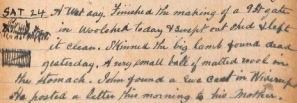 SAT 24. A Wet day. Finished the making of a 9ft gate
in Woolshed today & swept out shed & left
it clean. Skinned the big lamb found dead
yesterday. A very small ball of matted wool in
the stomach. John found a ewe cast in
He posted a letter this morning to his Mother.